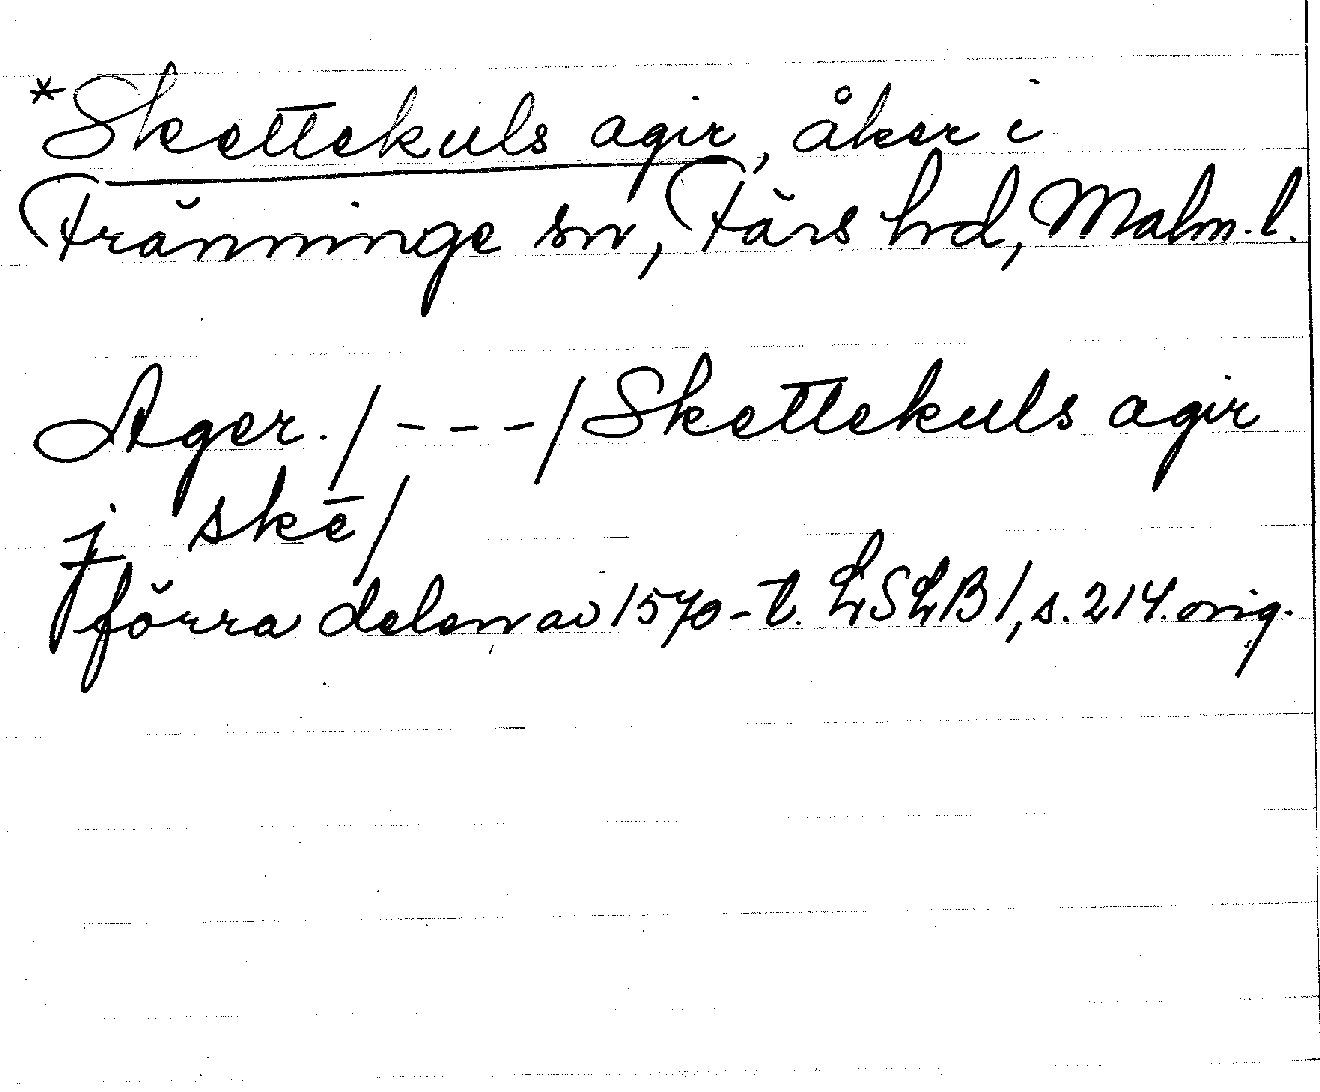 *Skettekuls agir, åker i
Fränninge sn, Färs hd, Malm. l.
Ager. / - - - / Skettekuls agir
j skē /
förra delen av 1570-t. LSLB 1, s. 214. orig.